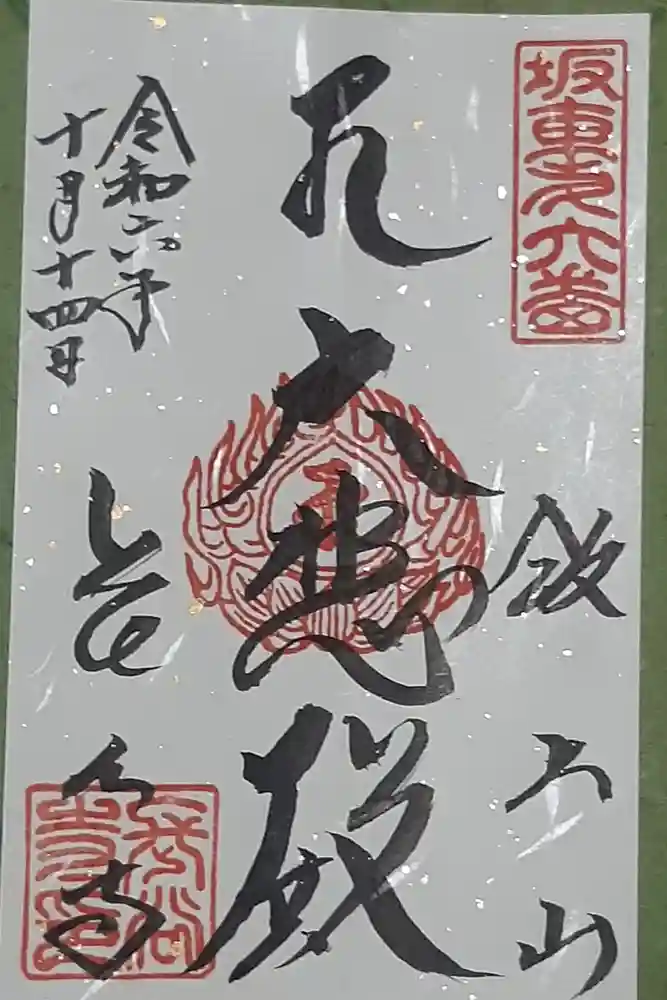 坂東第六番
飯上山
大悲殿
令和六年
十月十四日
長谷寺
長谷
寺印